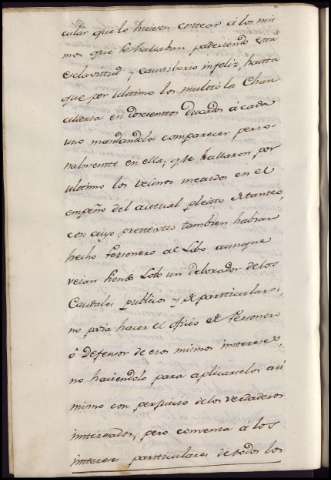 cular que lo hiciesen constar à los mis
mos que se hallaban padeciendo esta
Esclavitud y cautiverio infeliz, hasta
que por ultimo los multó la Chan
cilleria en doscientos Ducados à cada
uno mandandolos comparecer perso
nalmente en ella; y se hallaron por
ultimo los vecinos metidos en el
empeño del actual pleito de tanteo,
con cuyo pretexto tambien habian
hecho Personero al Lobo aunque
veian que un Lobo devorador de los
Caudales publicos y de particulares,
no podia hacer el oficio de Personero
ò Defensor de esos mismos intereses,
no haciendolo para aplicarselos asi
mismo con perjuicio de los verdaderos
interesados; pero convenia à los
intereses particulares de todos los